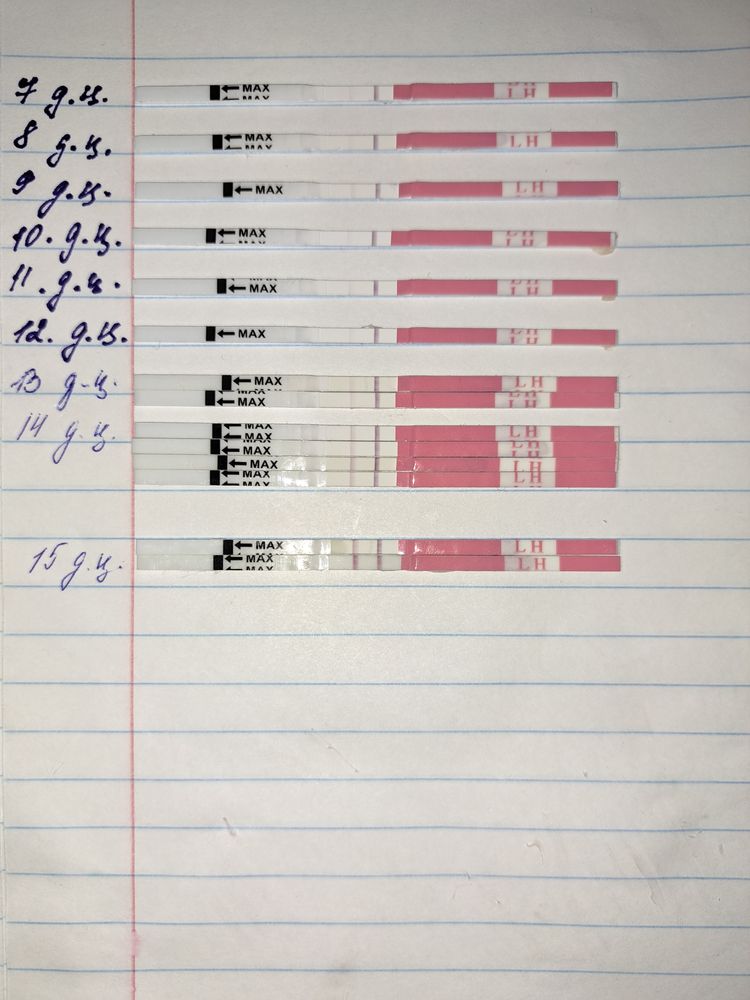 7 д.ц. MAX LH
8 д.ц. MAX MAX LH
9 д.ц. MAX LH
10. д.ц. MAX LH
11. д.ц. MAX LH
12. д.ц. MAX LH
13 д.ц. MAX LH
MAX LH
14 д.ц. MAX LH
MAX
MAX LH
MAX LH
MAX LH
15 д.ц. MAX LH
MAX LH